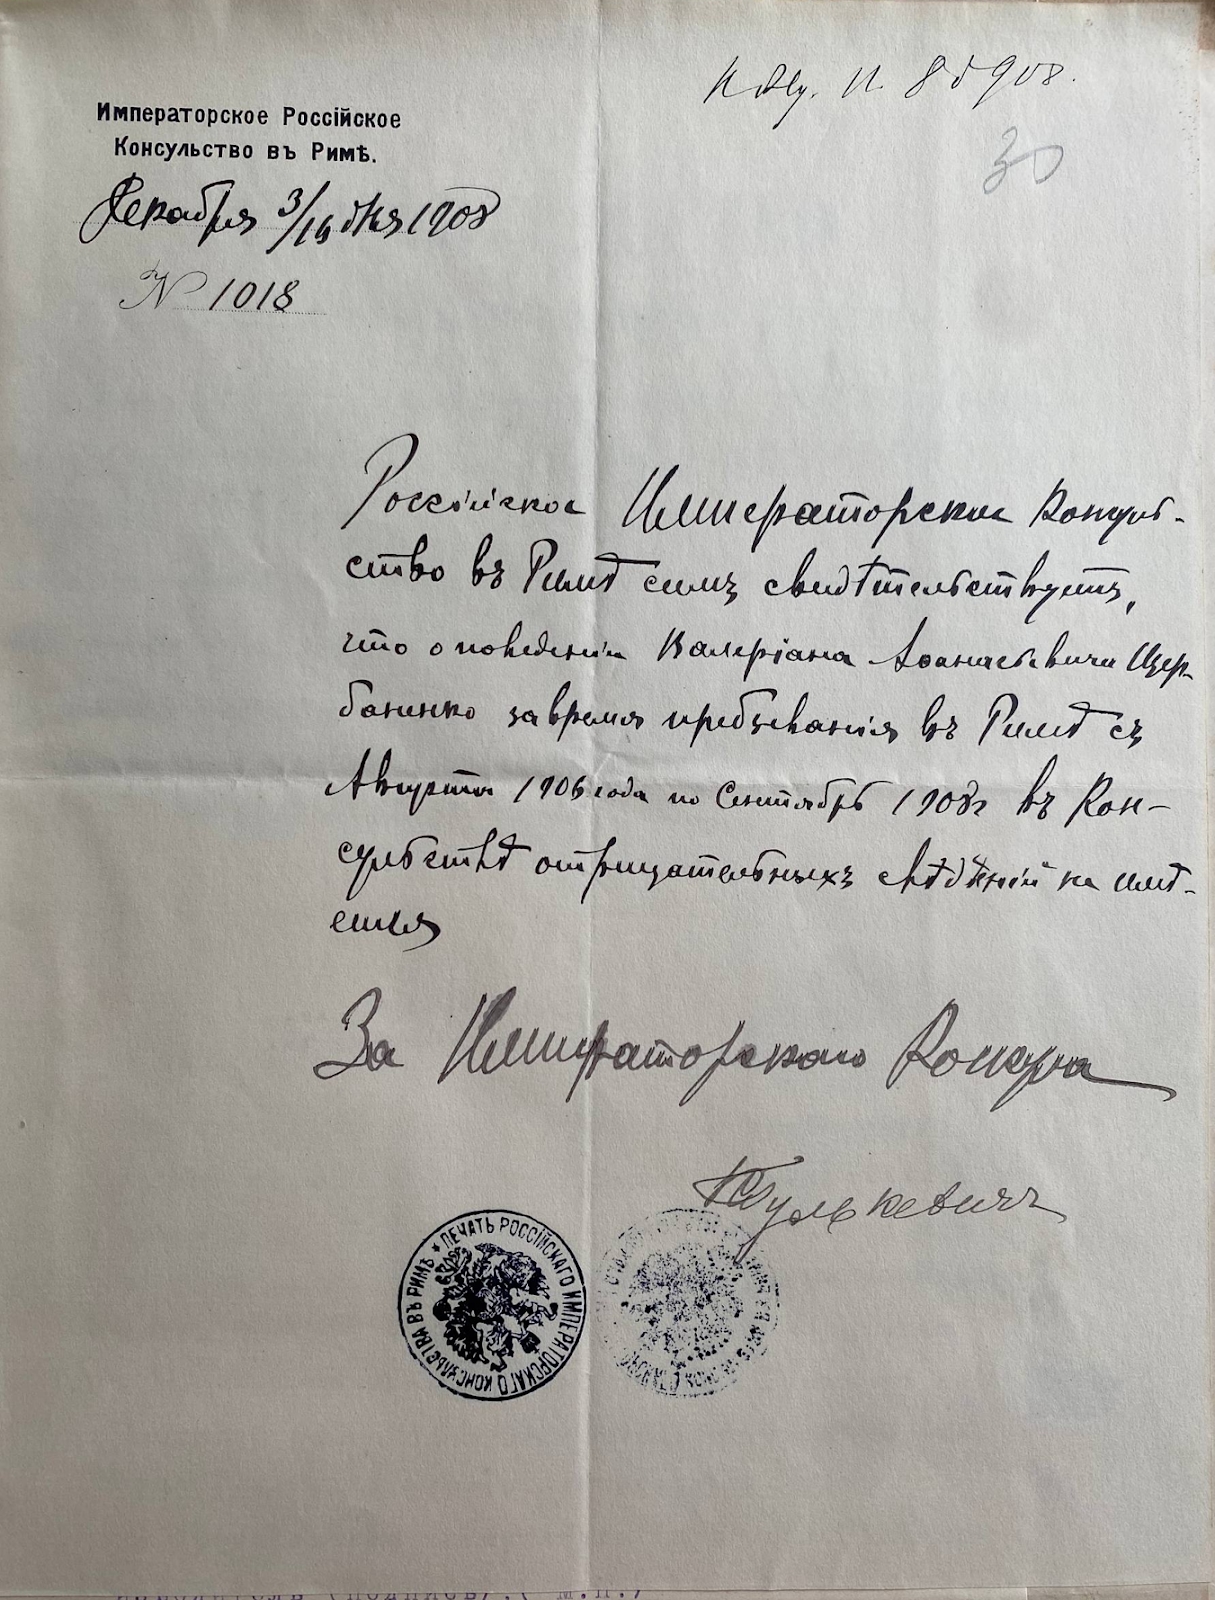 Императорское Россійское
Консульство въ Римѣ.
Декабря 3/16 дня 1908
№ 1018
30
Россійское Императорское Консуль-
ство въ Римѣ симъ свидѣтельствуетъ,
что о поведеніи Валеріана Аѳанасьевича Щер-
баненко за время пребыванія въ Римѣ съ
Августа 1906 года по Сентябрь 1908 г въ Кон-
сульствѣ отрицательныхъ свѣдѣній не имѣ-
ется
За Императорскаго Консула
Булькевичъ
ПЕЧАТЬ РОССІЙСКАГО ИМПЕРАТОРСКАГО КОНСУЛЬСТВА ВЪ РИМѢ